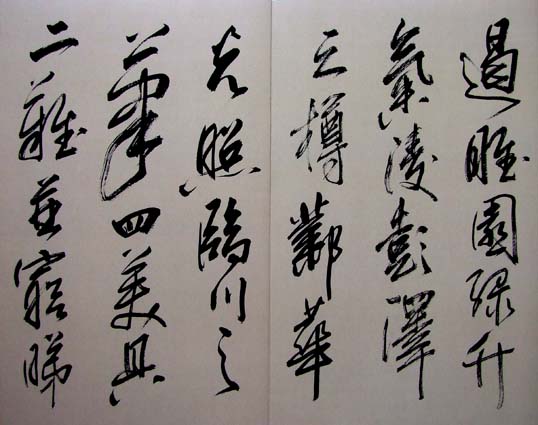 遏睢園綠竹
氣凌彭澤
之樽鄴華
光照臨川之
筆四美具
二難並窮睇